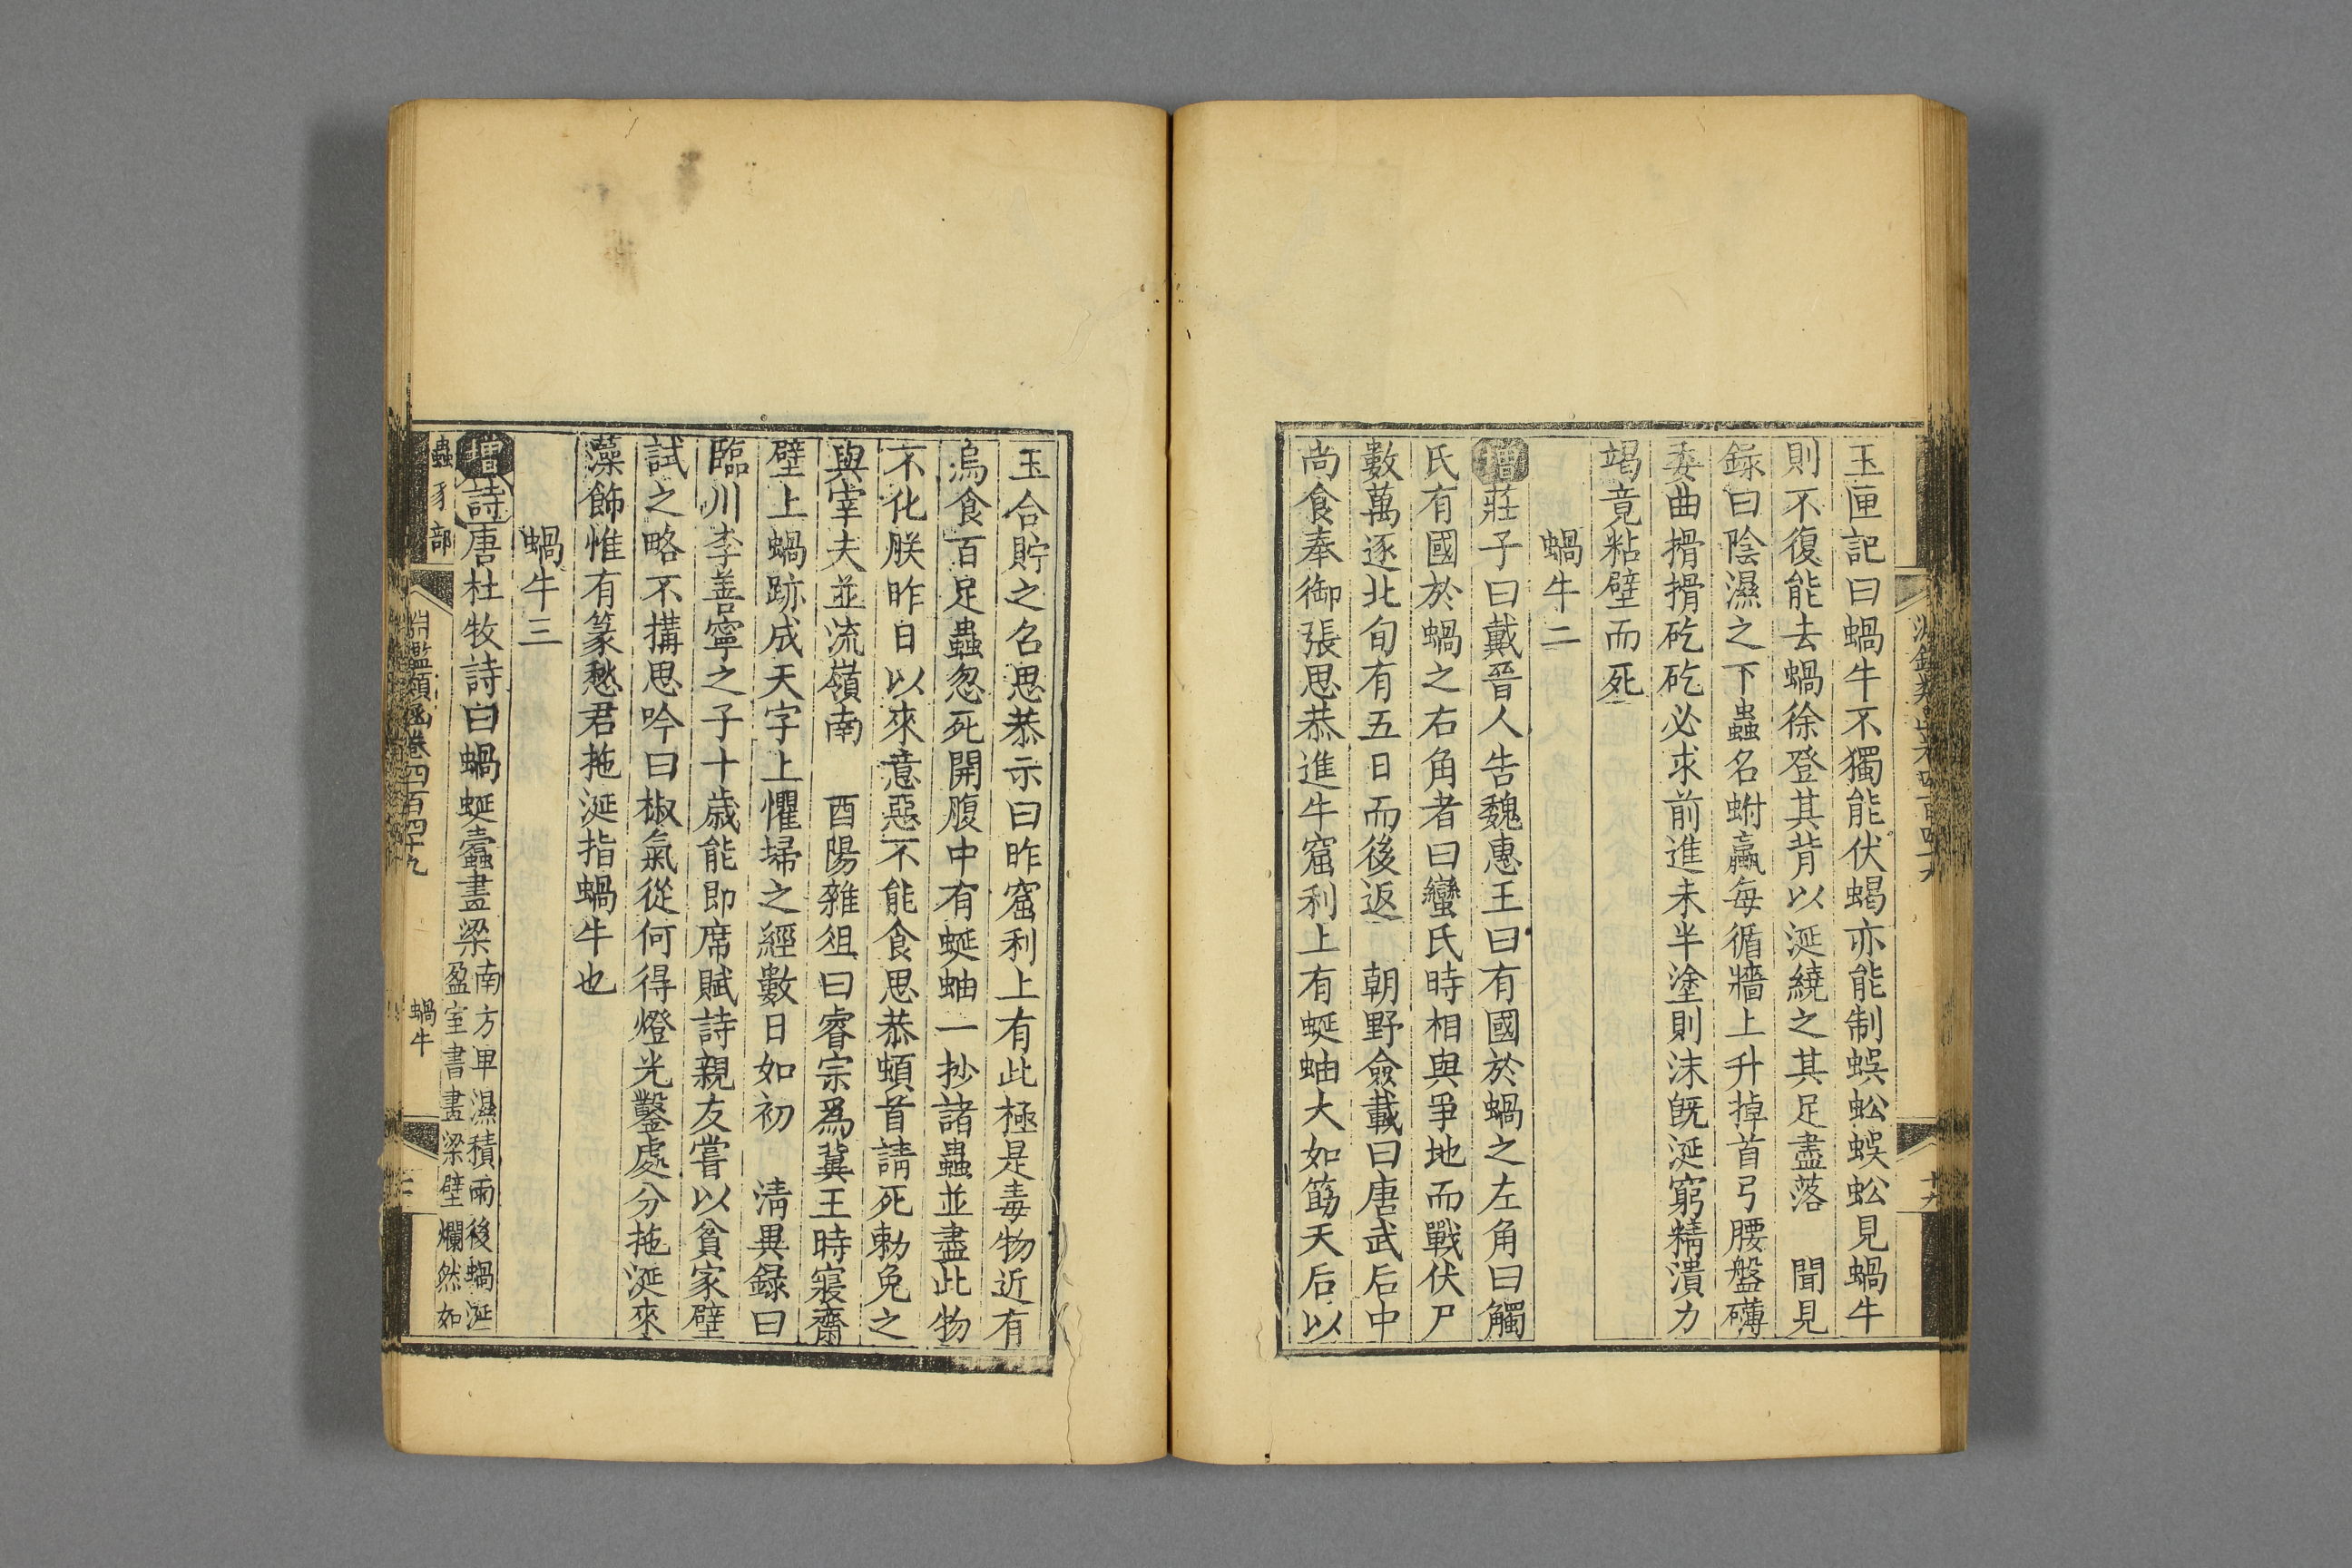 玉匣記曰蝸牛不獨能伏蝎亦能制蜈蚣蜈蚣見蝸牛
則不復能去蝸徐登其背以涎繞之其足盡落　聞見
錄曰陰濕之下蟲名蚹蠃每循牆上升掉首弓腰盤礴
委曲搰搰矻矻必求前進未半塗則沫旣涎窮精潰力
竭竟粘壁而死
蝸牛二
增莊子曰戴晉人告魏惠王曰有國於蝸之左角曰觸
氏有國於蝸之右角者曰蠻氏時相與爭地而戰伏尸
數萬逐北旬有五日而後返　朝野僉載曰唐武后中
尚食奉御張思恭進牛窟利上有蜒蚰大如筯天后以
玉合貯之名思恭示曰昨窟利上有此極是毒物近有
烏食百足蟲忽死開腹中有蜒蚰一抄諸蟲並盡此物
不化朕昨日以來意惡不能食思恭頓首請死勅免之
與宰夫並流嶺南　酉陽雜俎曰睿宗爲冀王時寢齋
壁上蝸跡成天字上懼埽之經數日如初　淸異錄曰
臨川李善寧之子十歲能卽席賦詩親友嘗以貧家壁
試之略不搆思吟曰椒氣從何得燈光鑿處分拖涎來
藻飾惟有篆愁君拖涎指蝸牛也
蝸牛三
增詩唐杜牧詩曰蝸蜒蠹畫梁南方卑濕積雨後蝸涎
盈室書畫梁壁爛然如
蟲豸部
淵鑑類函卷四百四十九
蝸牛